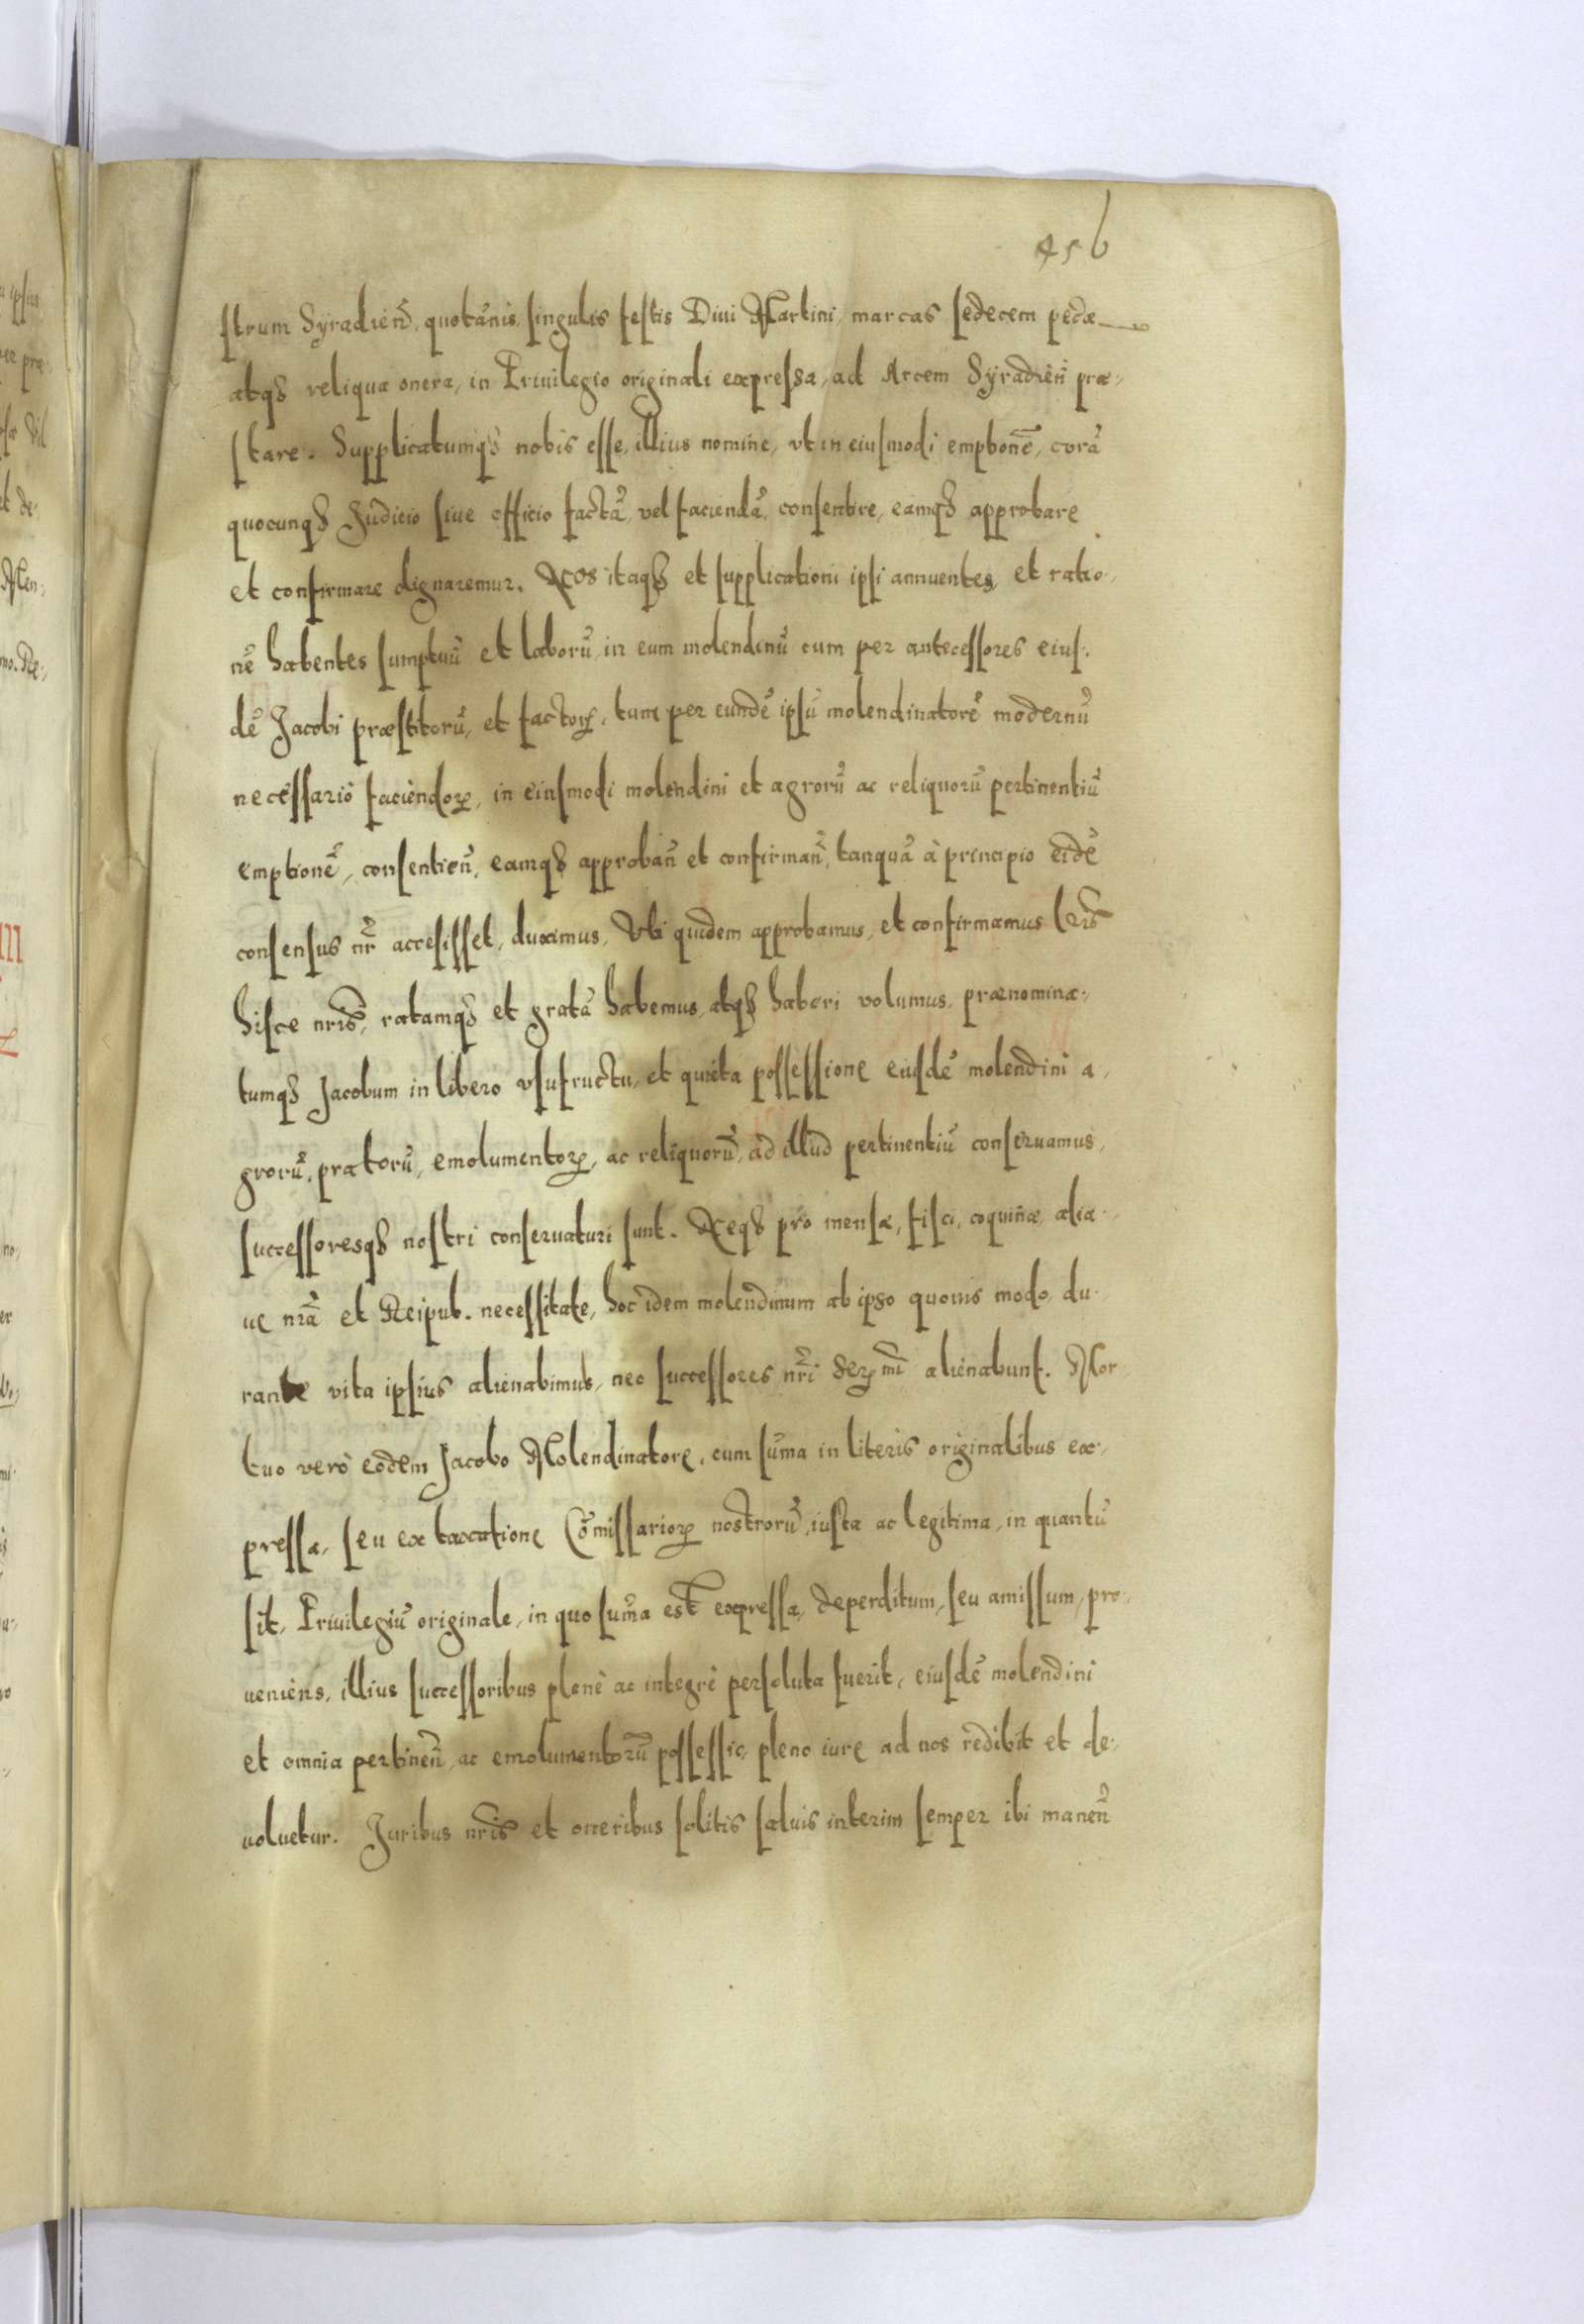 456
strum Syradieñ, quotãnis, singulis festis Diui Martini, marcas sedecem pecũæ
atqȝ reliqua onera, in Priuilegio originali expressa, ad Arcem Syradieñ præ-
stare. Supplicatumqȝ nobis esse, illius nomine, vt in eiusmodi emptionẽ, corã
quocunqȝ Judicio siue officio factã, vel faciendã, consentire, eamqȝ approbare
et confirmare dignaremur. Nos itaqȝ et supplicationi ipsi annuentes, et ratio-
nẽ habentes sumptuũ et laborũ, in eum molendinũ cum per antecessores eius-
dẽ Jacobi præstitorũ, et factoꝝ, tum per eundẽ ipsũ molendinatorẽ modernũ
necessario faciendoꝝ, in eiusmodi molendini et agrorũ ac reliquorũ pertinentiũ
emptionẽ, consentieñ, eamqȝ approbañ et confirmañ, tanquã à principio eidẽ
consensus nr̃ accesisset, duximus, Vti quidem approbamus, et confirmamus Lr̃is
hisce nr̃is, ratamqȝ et gratã habemus, atqȝ haberi volumus, prænomina-
tumqȝ Jacobum in libero vsufructu, et quieta possessione eiusdẽ molendini a-
grorũ, pratorũ, emolumentoꝝ, ac reliquorũ, ad illud pertinentiũ conseruamus,
successoresqȝ nostri conseruaturi sunt. Neqȝ pro mensæ, fisci, coquinæ, alia-
ue nr̃a et Reipub. necessitate, hoc idem molendinum ab ipso quouis modo, du-
rante vita ipsius alienabimus, nec successores nr̃i Serꝫmi alienabunt. Mor
tuo verò eodem Jacobo Molendinatore, cum sum̃a in literis originalibus ex-
pressa, seu ex taxatione Com̃issarioꝝ nostrorũ, iusta ac legitima, in quantũ
sit, Priuilegiũ originale, in quo sum̃a est expressa, deperditum, seu amissum, pro-
ueniens, illius successoribus plenè ac integrè persoluta fuerit, eiusdẽ molendini
et omnia pertineñ, ac emolumentorũ possessio, pleno iure ad nos redibit et de-
uoluetur. Juribus nr̃is et oneribus solitis saluis interim semper ibi maneñ